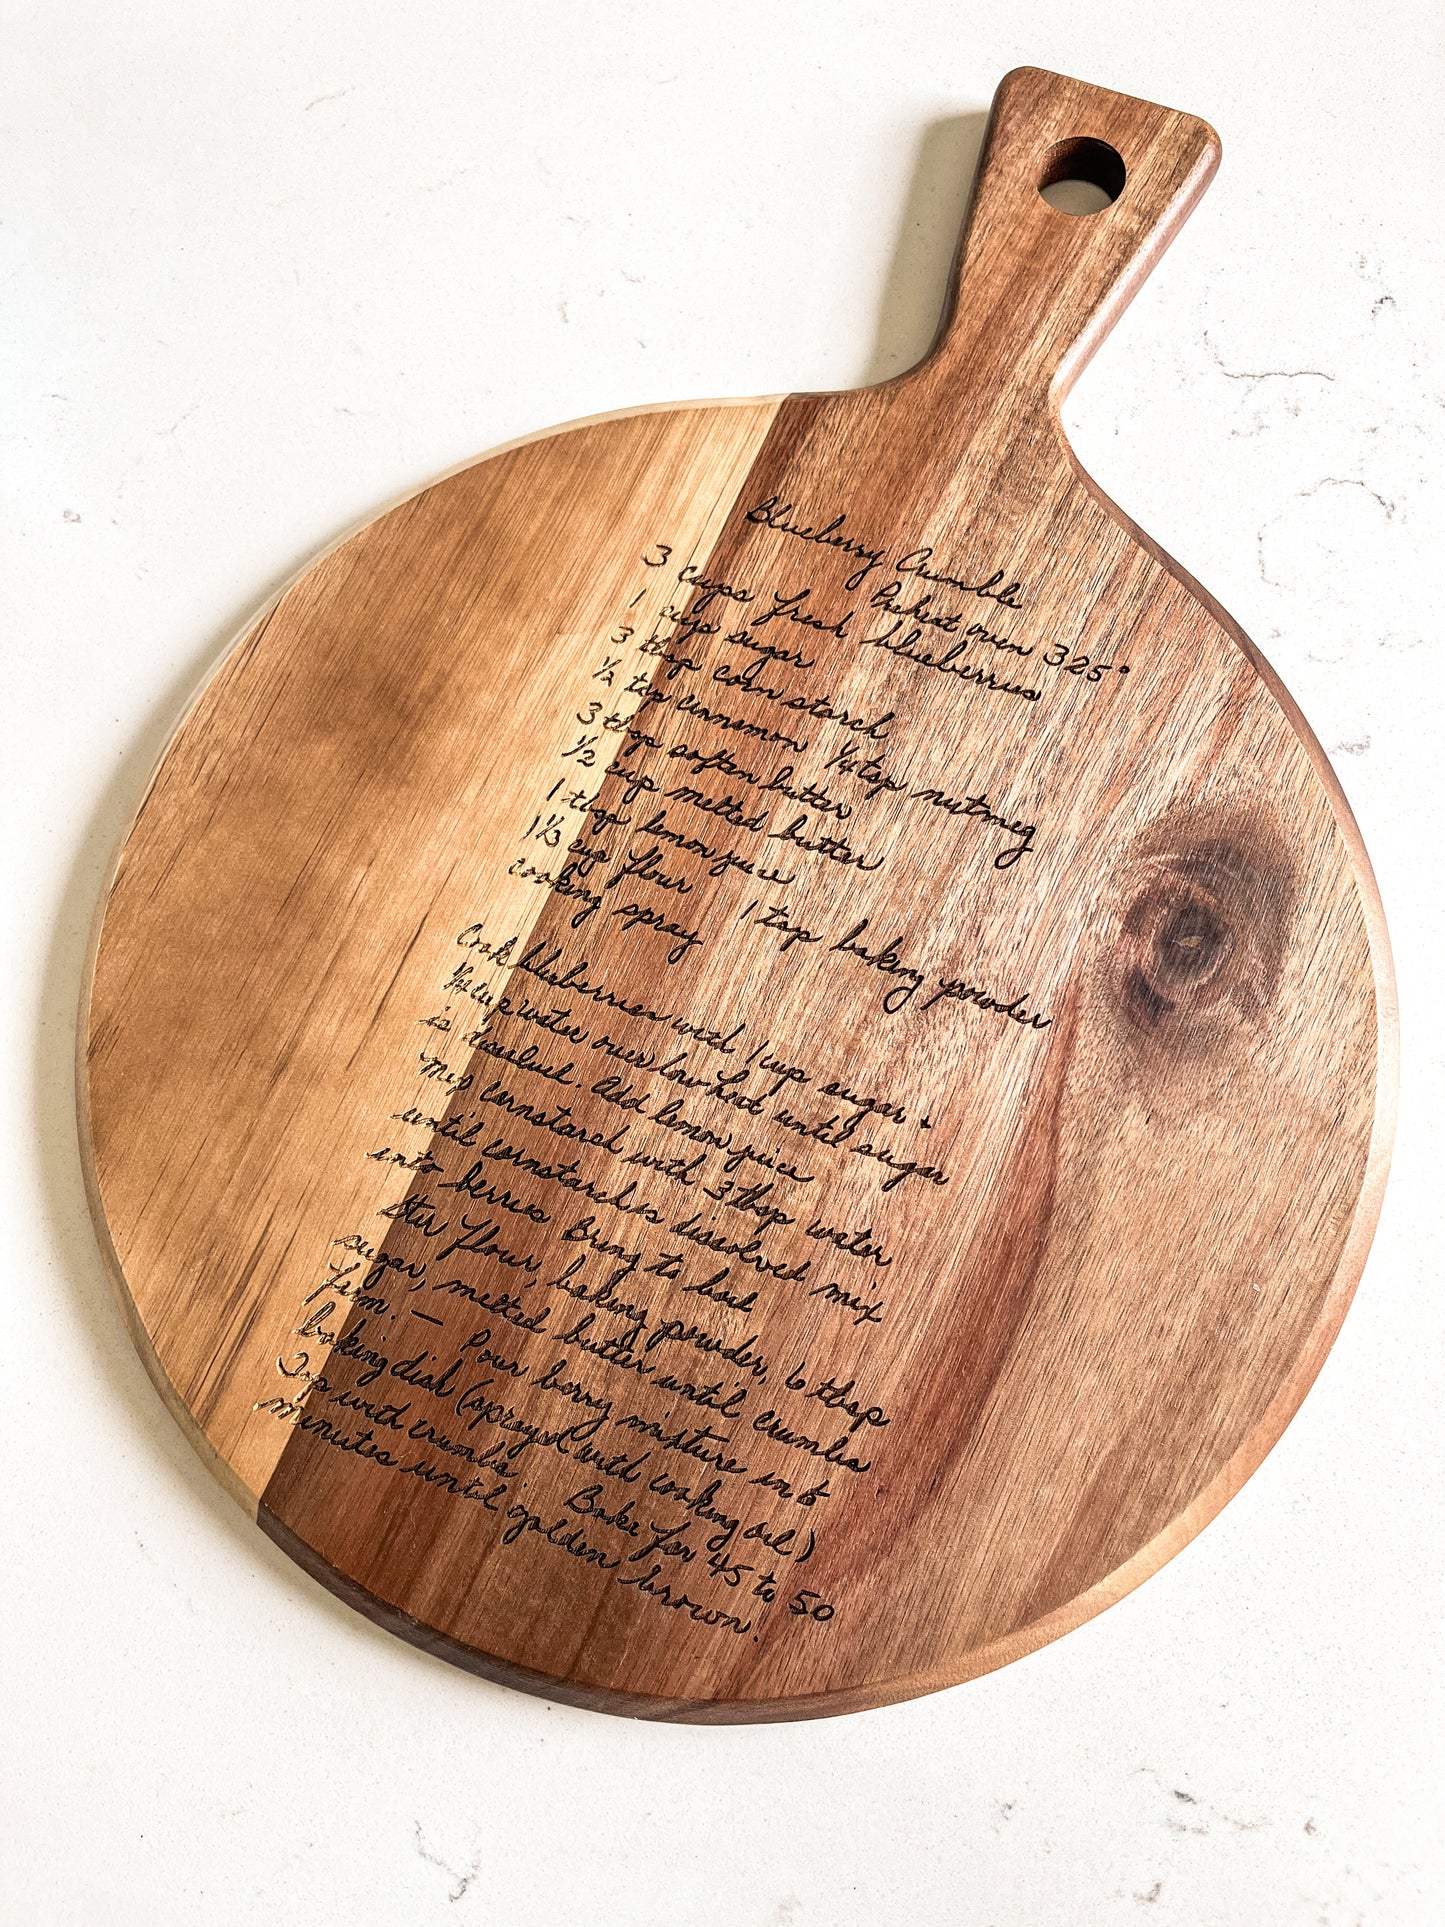 Blueberry Crumble
Preheat oven 325°
3 cups fresh blueberries
1 cup sugar
3 tbsp corn starch
1/2 tsp cinnamon 1/4 tsp nutmeg
3 tbsp soften butter
1/2 cup melted butter
1 tbsp lemon juice
1 1/3 cup flour 1 tsp baking powder
cooking spray
Cook blueberries with 1 cup sugar +
1/4 cup water over low heat until sugar
is dissolved. Add lemon juice
Mix cornstarch with 3 tbsp water
until cornstarch is dissolved mix
into berries Bring to boil
Stir flour, baking powder, 6 tbsp
sugar, melted butter until crumbs
form. — Pour berry mixture into
baking dish (sprayed with cooking oil)
Top with crumbs Bake for 45 to 50
minutes until golden brown.